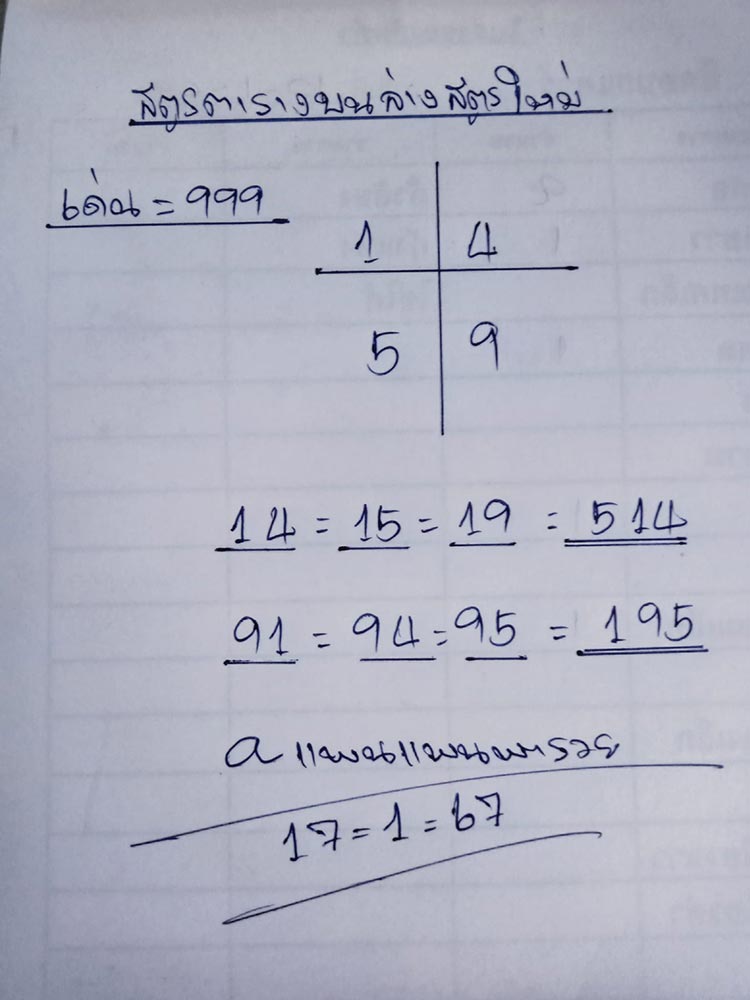 สูตรตารางบนล่างสูตรใหม่
เด่น = 999
1 4
5 9
14 = 15 = 19 = 514
91 = 94 = 95 = 195
a แพนแพนพารวย
17 = 1 = 67